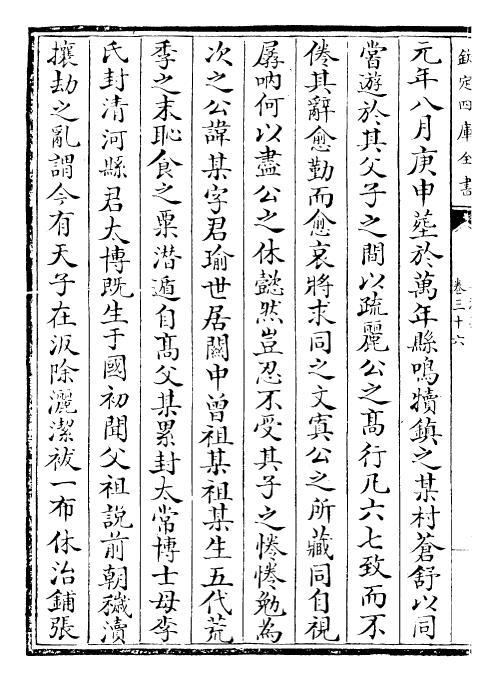 欽定四庫全書
卷三十六
元年八月庚申塟於萬年縣鳴犢鎮之某村蒼舒以同
當遊於其父子之間以疏麗公之髙行凡六七致而不
倦其辭愈勤而愈哀將求同之文寘公之所藏同自視
孱吶何以盡公之休懿然豈忍不受其子之惓惓勉為
次之公諱某字君瑜世居關中曾祖某祖某生五代荒
季之末恥食之粟潜遁自髙父某累封太常博士母李
氏封清河縣君太博既生于國初聞父祖說前朝穢瀆
攘劫之亂謂今有天子在汳除灑潔袚一布休治鋪張